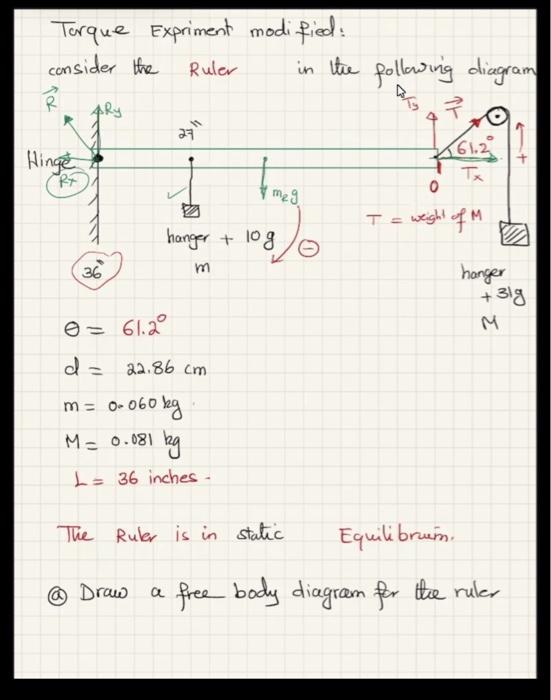 Torque Expriment modified:
consider the Ruler in the following diagram
R Ry Ty T
27"
Hinge 61.2°
Rx mRg Tx
0
T = weight of M
hanger + 10 g
m
36"
hanger
+ 31g
M
θ = 61.2°
d = 22.86 cm
m = 0.060 kg
M = 0.081 kg
L = 36 inches -
The Ruler is in static Equilibruim.
ⓐ Draw a free body diagram for the ruler